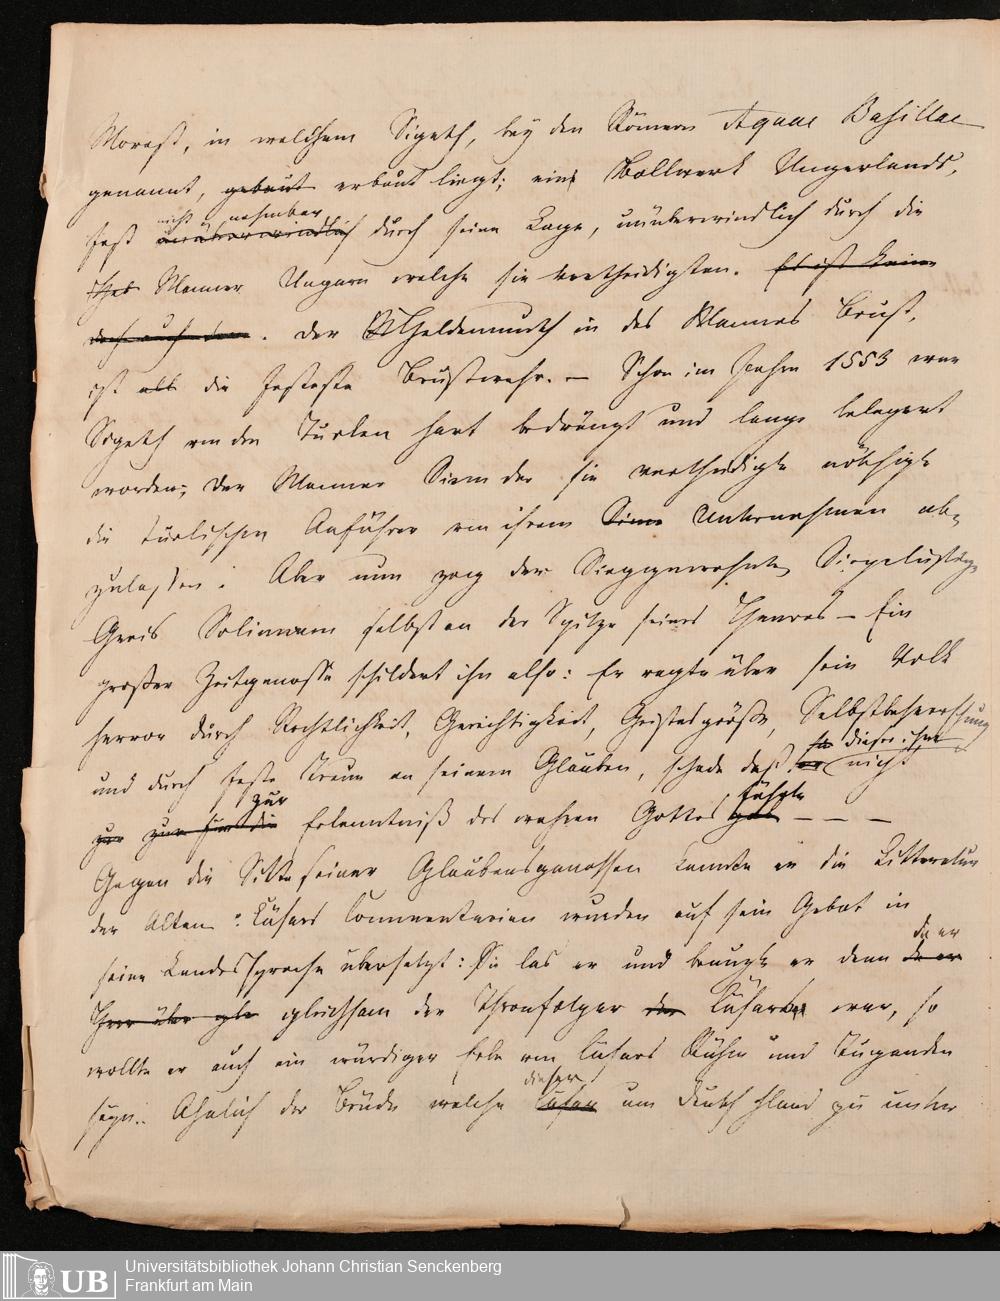 Morast, in welchem Sigeth, bey den Römern Aquae Basillae
genannt, gebaut erbaut liegt; eins Bollwerk Ungerlands,
nicht nehmbar
fest unüberwindlich durch seine Lage, unüberwindlich durch die
Männer Ungarn welche sie vertheidigten. Es ist kein
doch auch dem. Der Heldenmuth in des Mannes Brust,
ist als die festeste Brustwehr. — Schon im Jahre 1553 war
Sigeth von den Türken hart bedrängt und lange belagert
worden; der Männer Sinn der sie vertheidigte nöthigte
die türkischen Anführer von ihrem Sinne Unternehmen ab-
zulassen. Aber nun zog der Sieggewohnte, Siegelustige
Greis Solimann selbst an der Spitze seines Heeres — Ein
großer Zeitgenosse schildert ihn also: Er ragte über sein Volk
hervor durch Rechtlichkeit, Gerechtigkeit, Geistesgröße, Selbstbeherrschung
dieser ihn
und durch feste Treue an seinem Glauben, schade daß er nicht
zur führte
zur zur Erkenntniß des wahren Gottes — — —
Gegen die Sitte seiner Glaubensgenossen kannte er die Litteratur
der Alten: Cäsars Commentarien wurden auf sein Gebot in
da er
seine Landessprache übersetzt: Sie las er und da er
gleichsam der Thronfolger des Cäsars war, so
wollte er auch ein würdiger Erbe von Cäsars Ruhm und Tugenden
dieser
seyn. Ähnlich der Brücke welche Cäsar um Deutschland zu unter
Universitätsbibliothek Johann Christian Senckenberg
UB
Frankfurt am Main